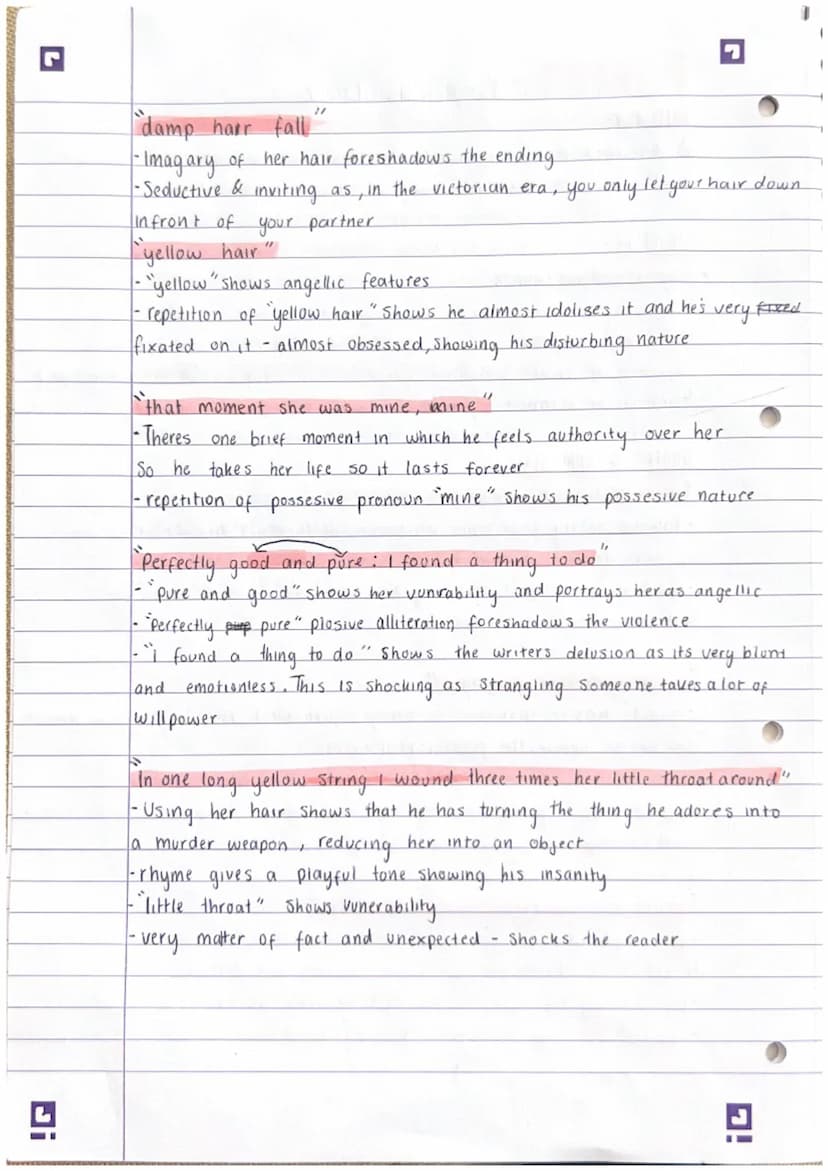 "damp hair fall"
- Imagary of her hair foreshadows the ending
- Seductive & inviting as, in the victorian era, you only let your hair down
infront of your partner
"yellow hair"
- "yellow" shows angellic features
- repetition of "yellow hair" shows he almost idolises it and he's very fixed
fixated on it - almost obsessed, showing his disturbing nature
"that moment she was mine, mine"
- Theres one brief moment in which he feels authority over her
So he takes her life so it lasts forever
- repetition of possesive pronoun "mine" shows his possesive nature
"Perfectly good and pure : I found a thing to do"
- "pure and good" shows her vunrability and portrays her as angellic
- "Perfectly pure" plosive alliteration foreshadows the violence
- "i found a thing to do" shows the writers delusion as its very blunt
and emotionless. This is shocking as strangling someone takes a lot of
willpower
"In one long yellow string I wound three times her little throat around"
- Using her hair shows that he has turning the thing he adores into
a murder weapon, reducing her into an object
- rhyme gives a playful tone showing his insanity
- "little throat" shows vunerability
- very matter of fact and unexpected - shocks the reader